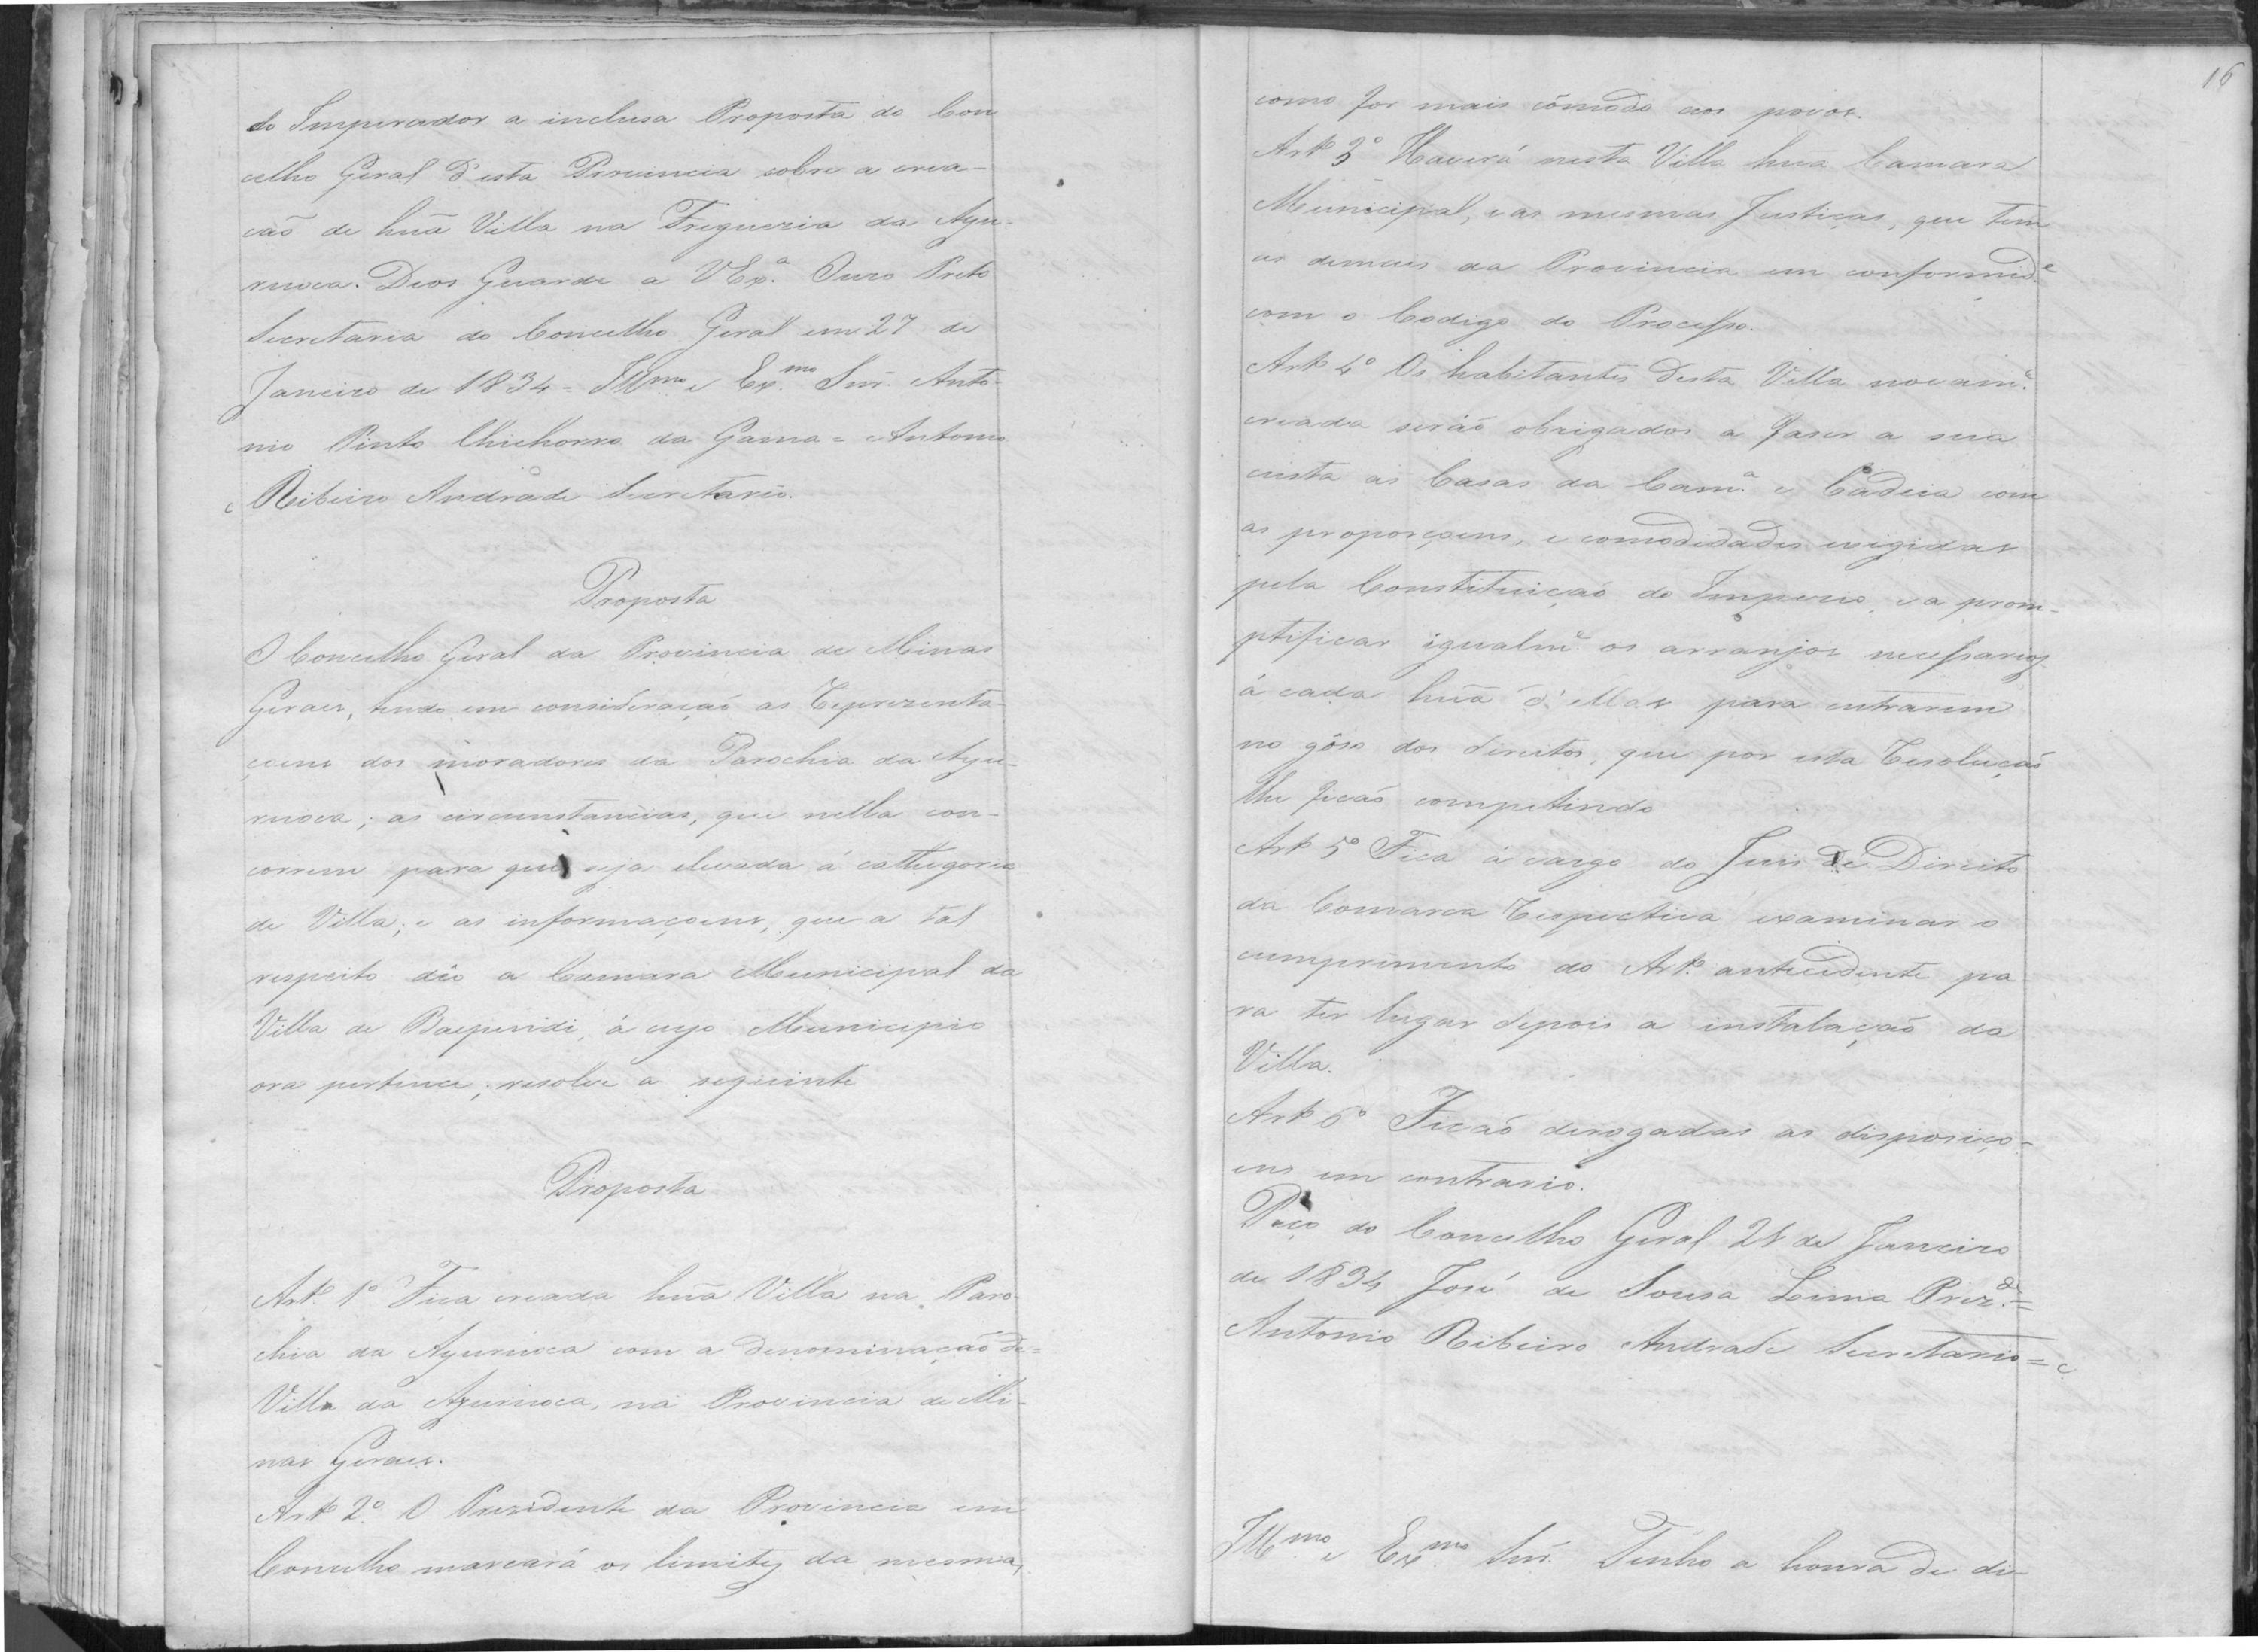 do Imperador a inclusa Proposta do Con
celho Geral d'esta Provincia sobre a crea-
caõ de huã Villa na Freguezia da Ayu-
ruoca. Deos Guarde a VEx.ª Ouro Preto
Secretaria do Concelho Geral em 27 de
Janeiro de 1834 = Illmo e Ex.mo Snr. Anto-
nio Pinto Chichorro da Gama = Antonio
Ribeiro Andrade Secretario.
Proposta
O Concelho Geral da Provincia de Minas
Geraes, tendo em consideraçaõ as Reprezenta-
çoens dos moradores da Parochia da Ayu-
ruoca; as circunstancias, que nella con-
correm para que seja elevada á cathegoria
de Villa; e as informaçoens, que a tal
respeito dêo a Camara Municipal da
Villa de Baependi, á cujo Municipio
ora pertence, resolve a seguinte
Proposta
Art.º 1º Fica creada huã Villa na Paro-
chia da Ayuruoca com a denominaçaõ de =
Villa da Ayuruoca, na Provincia de Mi-
nas Geraes.
Artº 2º O Prezidente da Provincia em
Concelho marcará os limites da mesma,
16
como for mais cômodo aos povos.
Artº 3º Haverá nesta Villa huã Camara
Municipal, e as mesmas Justiças, que tem
as demais da Provincia em conformid.e
com o Codigo do Processo.
Artº 4º Os habitantes desta Villa novam.e
creada seráõ obrigados a faser a sua
custa as Casas da Cam.ª e Cadeia com
as proporçoens, e comodidades exigidas
pela Constituiçaõ do Imperio, e a prom-
ptificar igualm.e os arranjos necessarios
á cada huã d'ellas para entrarem
no gôso dos direitos, que por esta Resoluçaõ
lhe ficaõ competindo
Artº 5º Fica á cargo do Juis de Direito
da Comarca Respectiva examinar o
cumprimento do Art.º antecidente pa-
ra ter lugar depois a instalaçaõ da
Villa.
Artº 6º Ficaõ derogadas as disposiço-
ens em contrario.
Paço do Concelho Geral 21 de Janeiro
de 1834 José de Sousa Lima Prez.de =
Antonio Ribeiro Andrade Secretario =
Illmo e Exmo Snr. Tenho a honra de di-